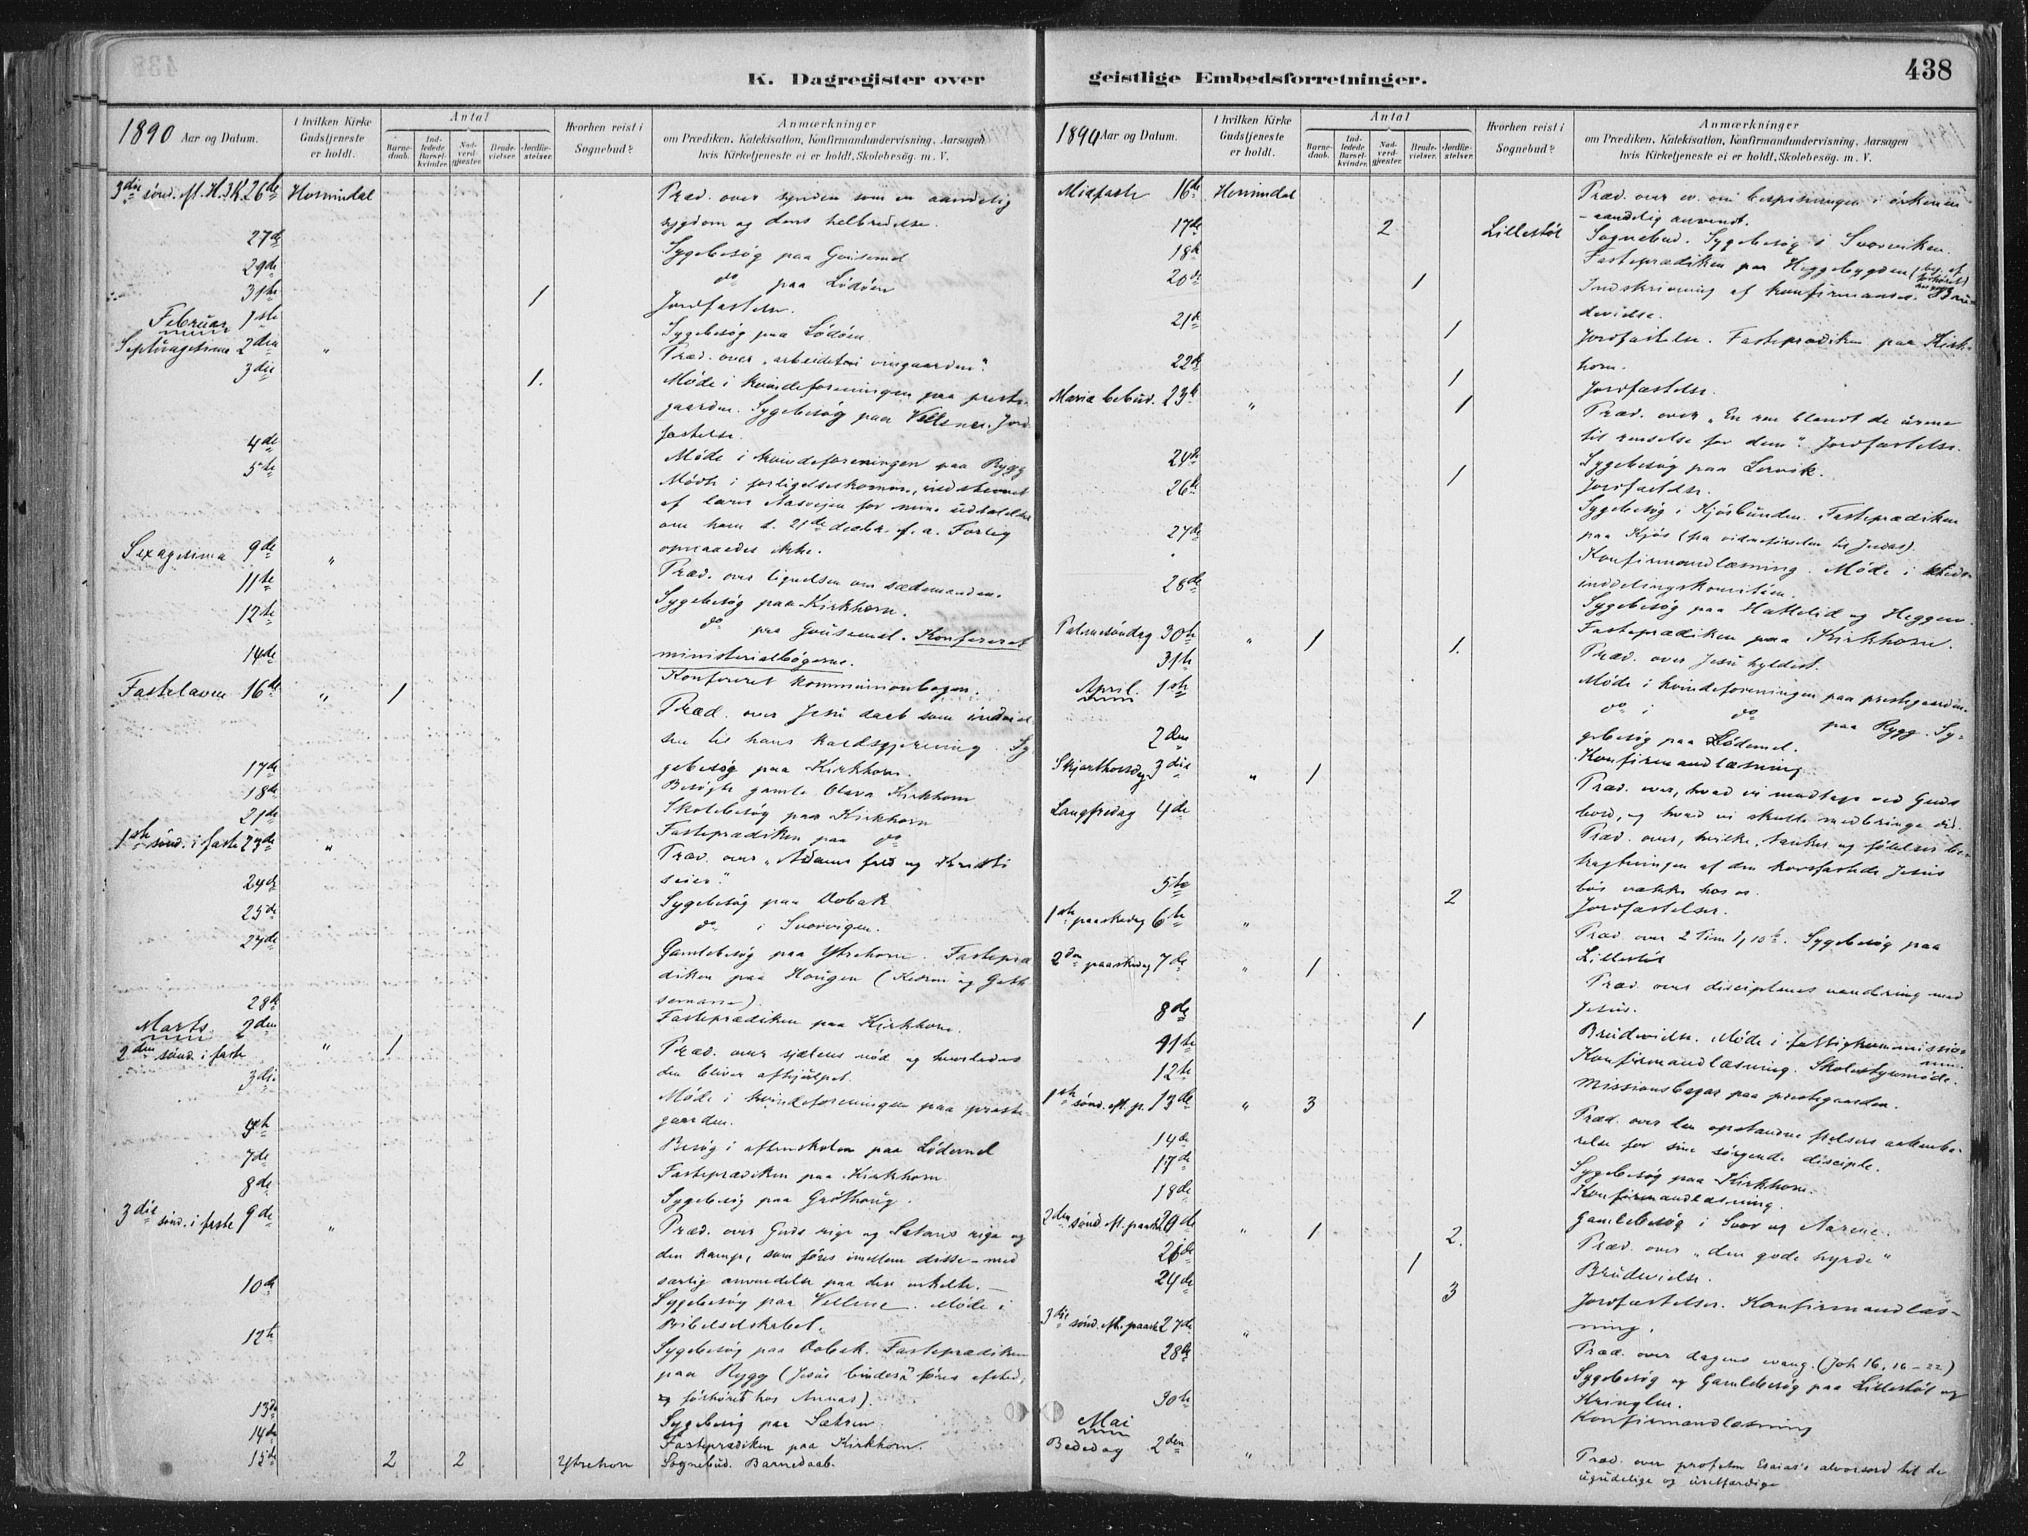 438
K. Dagregister over
1890 Aar og Datum.
I hvilken Kirke Gudstjeneste er holdt.
Antal
Barnedaab.
Indledede Barselkvinder.
Nadverdgjester.
Brudevielser.
Jordfæstelser.
Hvorhen reist i Sognebud?
Anmærkninger
om Prædiken, Katekisation, Konfirmandundervisning, Aarsagen
hvis Kirketjeneste ei er holdt, Skolebesøg. m. V.
3die sønd. eft. H.3.K. 26de Hornindal Præd. over synden som en aandelig
sygdom og dens helbredelse.
27de Sygebesøg paa Gousemel
29de do paa Lødøen
31te 1 Jordfæstelse.
Februar 1ste Sygebesøg paa Lødøen
Septuagesima 2den " Præd. over "arbeidet i vingaarden".
3die 1. Møde i kvindeforeningen paa preste-
gaarden. Sygebesøg paa Vellene. Jord-
fæstelse.
4de Møde i kvindeforeningen paa Rygg
5te Møde i forligelseskomm.,
om ham d. 21de decbr. f. a. Forlig
opnaaedes ikke.
Sexagesima 9de " Præd. over lignelsen om sædemanden.
11te Sygebesøg paa Kirkhorn.
12te do paa Gousemel. Konfereret
ministerialbøgerne.
14de Konfereret kommunionbogen.
Fastelaven 16de " 1 Præd. over Jesu daab som indviel-
sen til hans kaldsgjerning. Sy-
gebesøg paa Kirkhorn.
17de Besøgte gamle Olava Kirkhorn
18de Skolebesøg paa Kirkhorn
21de Fasteprædiken paa do
1ste sønd. i faste 23de " Præd. over "Adams fald og Kristi
seier."
24de Sygebesøg paa Dobak
25de do i Svorvigen.
27de Gamlebesøg paa Ytrehorn. Fastepræ-
diken paa Hougen (Kedron og Geth-
semane).
28de Fasteprædiken paa Kirkhorn.
Marts 2den
2den sønd. i faste " 1 Præd. over sjælens nød og hvorledes
den bliver afhjulpet.
3die Møde i kvindeforeningen paa preste-
gaarden.
Besøg i aftenskolen paa Lødemel
7de Fasteprædiken paa Kirkhorn
8de Sygebesøg paa Grothoug.
3die sønd. i faste 9de " Præd. over Guds rige og Satans rige og
den kamp, som føres imellem disse - med
særlig anvendelse paa den enkelte.
10de Sygebesøg paa Vellene. Møde i
Bibelselskabet.
12te Sygebesøg paa Dobak. Fasteprædiken
paa Rygg (Jesus bindes, føres afsted,
forhøret hos Annas).
13de Sygebesøg paa Sætren
14de Fasteprædiken paa Kirkhorn.
15de 2 2 Ytrehorn Sognebud. Barnedaab.
geistlige Embedsforretninger.
1890 Aar og Datum.
I hvilken Kirke Gudstjeneste er holdt.
Antal
Barnedaab.
Indledede Barselkvinder.
Nadverdgjester.
Brudevielser.
Jordfæstelser.
Hvorhen reist i Sognebud?
Anmærkninger
om Prædiken, Katekisation, Konfirmandundervisning, Aarsagen
hvis Kirketjeneste ei er holdt, Skolebesøg. m. V.
Midfaste 16de Hornindal Præd. over ev. om bespisningen i ørkenen
- aandelig anvendt.
17de 2 Lillestøl Sognebud. Sygebesøg i Svorviken.
18de Fasteprædiken paa Heggebygden
20de 1 Indskrivning af konfirmander. Bru-
devielse.
21de 1 Jordfæstelse. Fasteprædiken paa Kirk-
horn.
22de 1 Jordfæstelse.
Mariæ bebud. 23de " 1 Præd. over "En ren blandt de urene
til renselse for dem". Jordfæstelse.
24de Sygebesøg paa Lervik.
26de 1 Jordfæstelse.
Sygebesøg i Kjøsbunden. Fasteprædiken
27de paa Kjøs (fra vidneførselen til Judas).
Konfirmandlæsning. Møde i kreds-
inddelingskomiteen.
28de Sygebesøg paa Hattelid og Heggen
Fasteprædiken paa Kirkhorn.
Palmesøndag 30te " 1 1. Præd. over Jesu hyldest.
31te Møde i kvindeforeningen paa prestegaarden.
April. 1ste do i do paa Rygg. Sy-
gebesøg paa Lødemel.
2den Konfirmandlæsning.
Skjærthorsdag 3die " 1 Præd. over, hvad vi modtage ved Guds
bord, og hvad vi skulle medbringe did.
Langfredag 4de Præd. over, hvilke tanker og følelser be-
tragtningen af den korsfæstede Jesus
bør vække hos os.
5te 2 Jordfæstelser.
1ste paaskedag 6te " Præd. over 2 Tim 1,10b. Sygebesøg paa
Lillestøl
2den paaskedag 7de " 1 Præd. over disciplenes vandring med
Jesus.
8de 1 Brudevielse. Møde i fattigkommissio-
nen.
11te Konfirmandlæsning. Skolestyremøde.
12te Missionsbazar paa prestegaarden.
1ste sønd. eft. p. 13de " 3 Præd. over den opstandne frelsers aabenba-
relse for sine sørgende disciple.
14de Sygebesøg paa Kirkhorn.
17de Konfirmandlæsning.
18de Gamlebesøg i Svor og Aarene.
2den sønd. eft. paaske 20de " 1 2. Præd. over "den gode hyrde"
1 Brudevielse.
24de 3 Jordfæstelser. Konfirmandlæs-
ning.
3die sønd. eft. paaske 27de " Præd. over dagens evang. (Joh 16, 16-22)
28de Sygebesøg og Gamlebesøg paa Lillestøl og
Kringlen.
30te Konfirmandlæsning
Mai
Bededag 2den " Præd. over profeten Esaias's alvorsord til de
ugudelige og uretfærdige